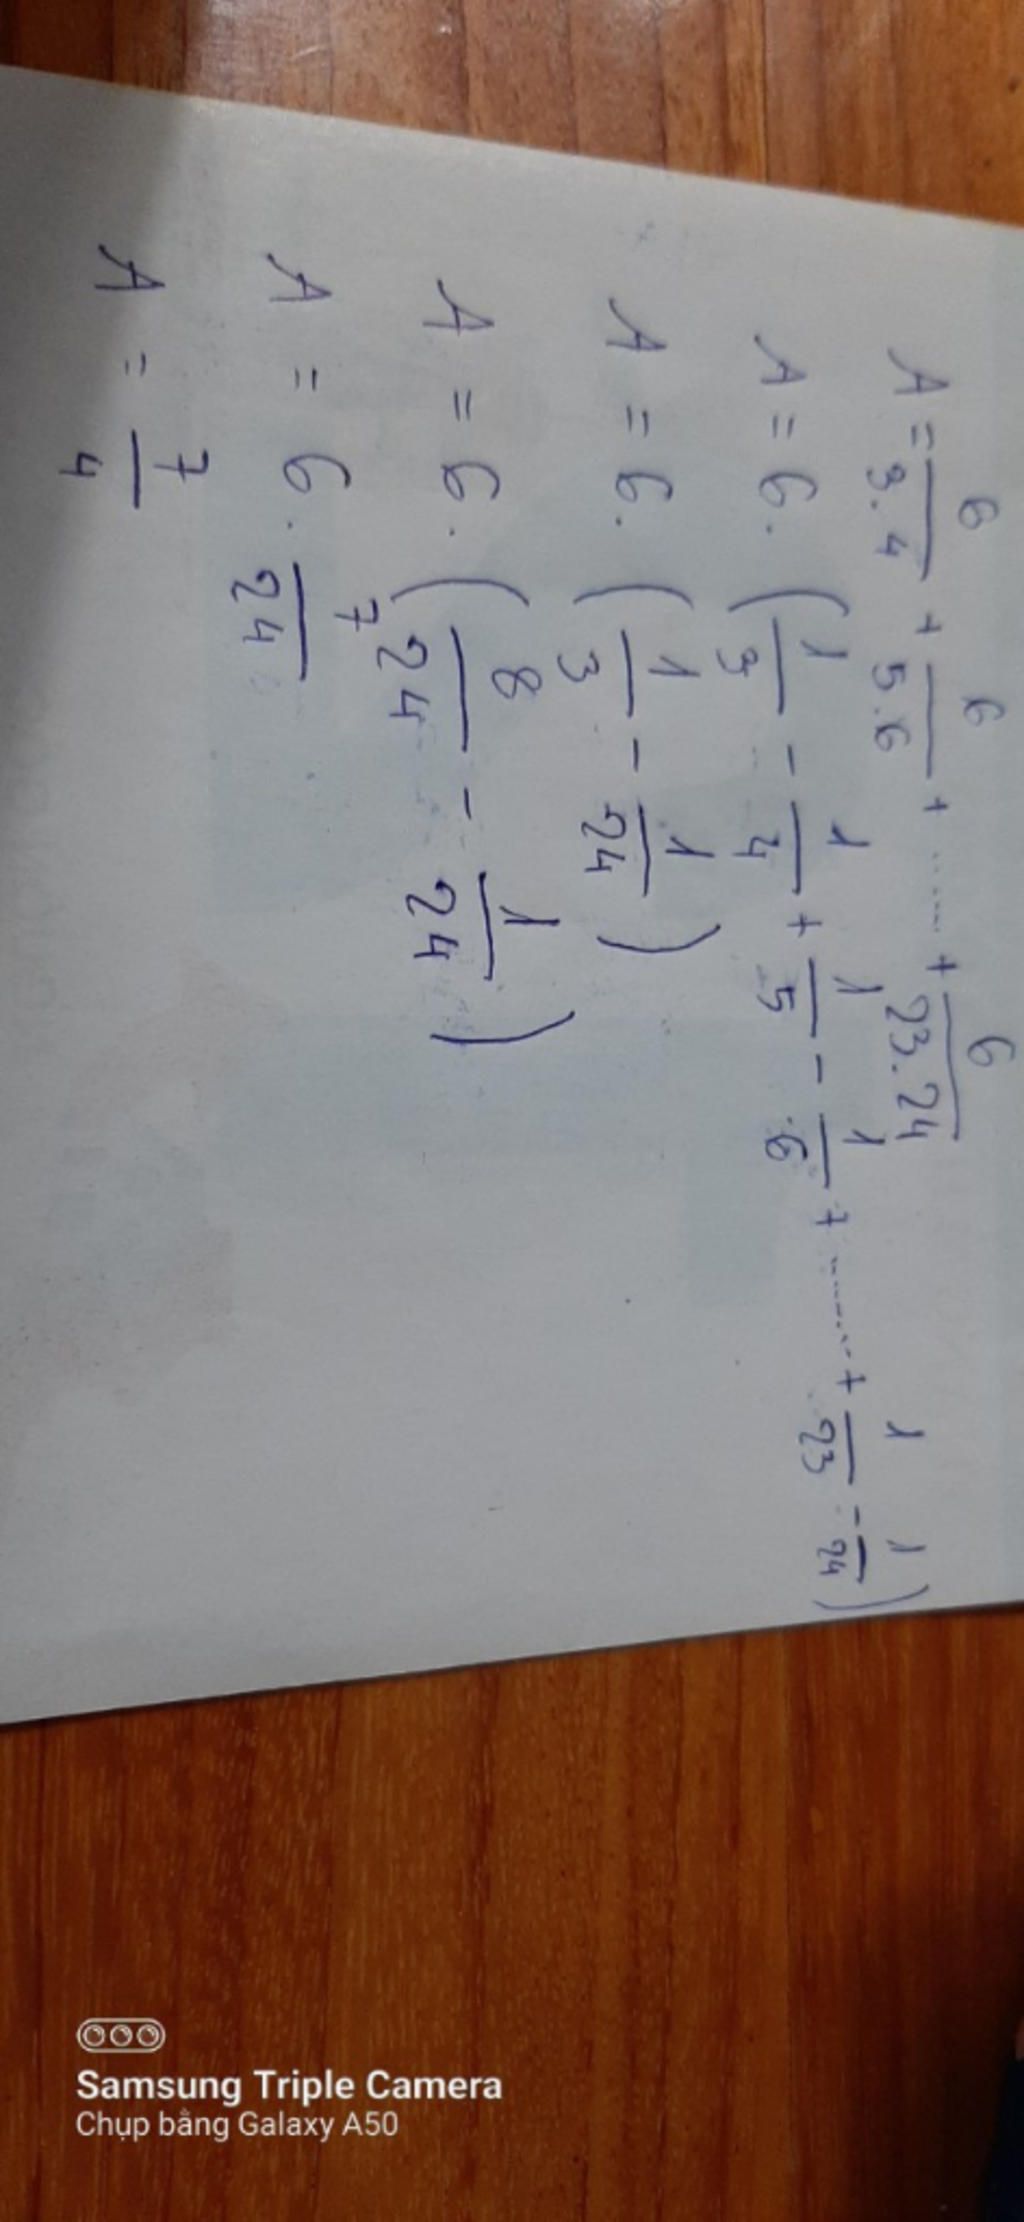 A = 6/3.4 + 6/5.6 + ...... + 6/23.24
A = 6. (1/3 - 1/4 + 1/5 - 1/6 + ........ + 1/23 - 1/24)
A = 6. (1/3 - 1/24)
A = 6. (8/24 - 1/24)
A = 6. 7/24
A = 7/4
Samsung Triple Camera
Chụp bằng Galaxy A50